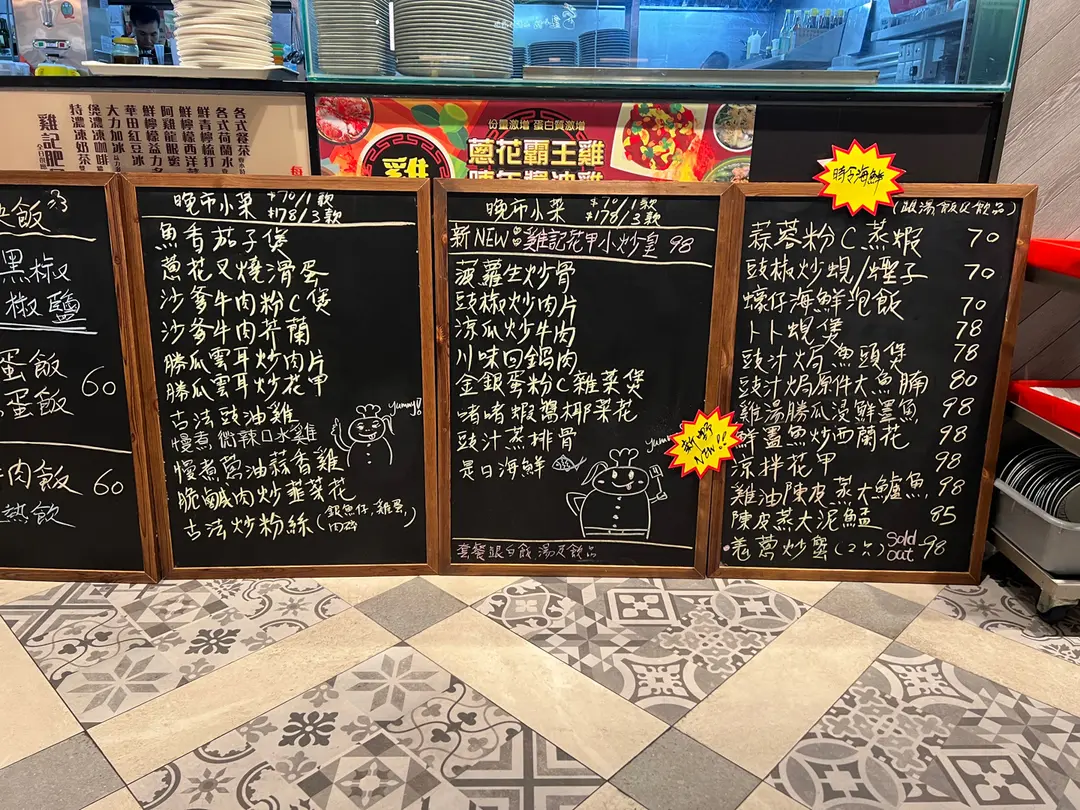 各式餐茶
各式荷蘭水
鮮青檸梳打
鮮檸檬西洋菜
鮮檸檬益力多
阿雞龍眼蜜
華田紅豆冰
大力加冰
煲濃凍咖啡
特濃凍奶茶
雞記肥
份量激增 蛋白質激增
蔥花霸王雞
雞
飯
黑椒
椒鹽
蛋飯
蛋飯 60
牛肉飯 60
熱飲
晚市小菜 $70/1款
$178/3款
魚香茄子煲
蔥花叉燒滑蛋
沙爹牛肉粉C煲
沙爹牛肉芥蘭
勝瓜雲耳炒肉片
勝瓜雲耳炒花甲
古法豉油雞
慢煮微辣口水雞
慢煮蔥油蒜香雞
脆鹹肉炒韮菜花
古法炒粉絲(銀魚仔,雞蛋,肉碎)
yummy!
晚市小菜 $70/1款
$178/3款
新NEW 雞記花甲小炒皇 98
菠蘿生炒骨
豉椒炒肉片
涼瓜炒牛肉
川味回鍋肉
金銀蛋粉C雜菜煲
啫啫蝦醬椰菜花
豉汁蒸排骨
是日海鮮
套餐跟白飯,湯及飲品
新野
NEW!!
時令海鮮
(跟湯飯及飲品)
蒜蓉粉C蒸蝦 70
豉椒炒蜆/蟶子 70
蠔仔海鮮泡飯 70
卜卜蜆煲 78
豉汁焗魚頭煲 78
豉汁焗原件大魚腩 80
雞湯勝瓜浸鮮墨魚 98
鮮墨魚炒西蘭花 98
涼拌花甲 98
雞油陳皮蒸大鱸魚 98
陳皮蒸大泥鯭 85
姜蔥炒蟹(2只) Sold out 98